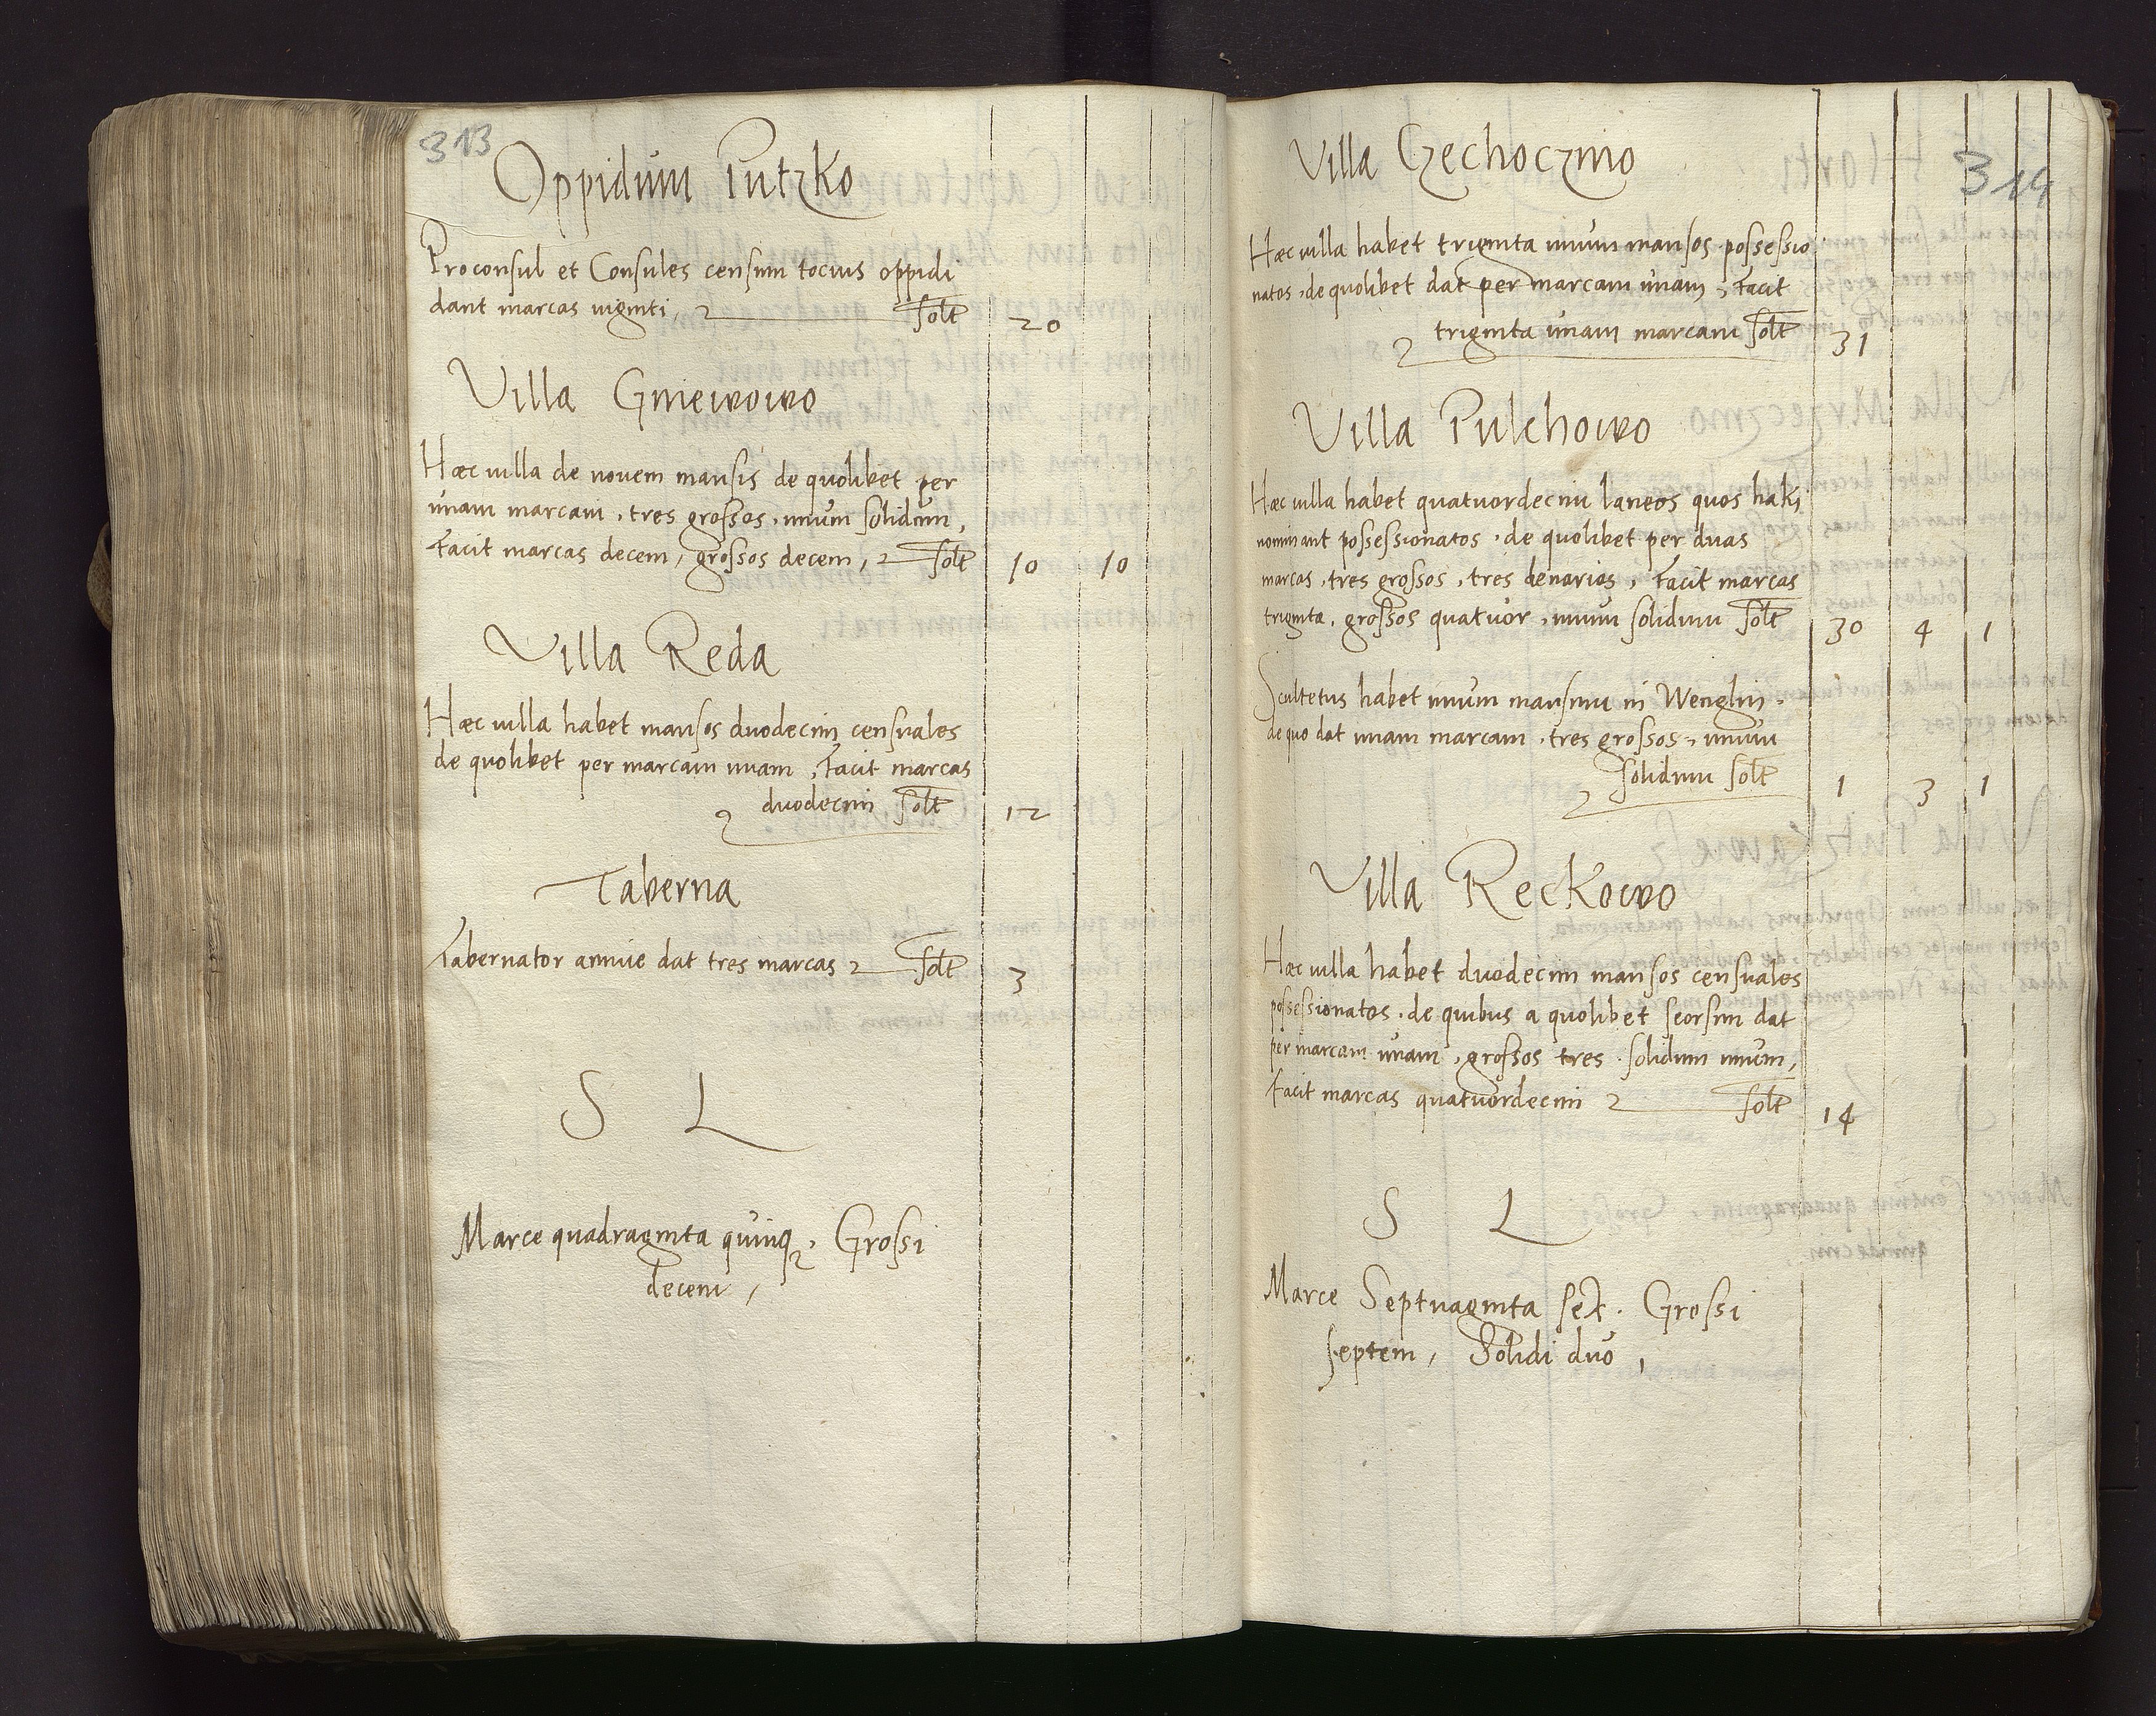 313
Oppidum Putzko
Proconsul et Consules censum tocius oppidi
dant marcas viginti, solt 20
Villa Gniewowo
Hæc villa de novem mansis de quolibet per
unam marcam, tres grossos, unum solidum,
Facit marcas decem, grossos decem, solt 10 10
Villa Reda
Hæc villa habet mansos duodecim censuales
de quolibet per marcam unam, Facit marcas
duodecim solt 12
Taberna
Tabernator annue dat tres marcas solt 3
S L
Marce quadraginta quinq, Grossi
decem,
314
Villa Czechoczino
Hæc villa habet triginta unum mansos possessio
natos, de quolibet dat per marcam unam, Facit
triginta unam marcam solt 31
Villa Pulchowo
Hæc villa habet quatuordecim laneos quos haki
nominant possessionatos, de quolibet per duas
marcas, tres grossos, tres denarios, Facit marcas
triginta, grossos quatuor, unum solidum solt 30 4 1
Scultetus habet unum mansum in Wenglin.
de quo dat unam marcam, tres grossos, unum
solidum solt 1 3 1
Villa Reckowo
Hæc villa habet duodecim mansos censuales
possessionatos, de quibus a quolibet seorsim dat
per marcam unam, grossos tres, solidum unum,
facit marcas quatuordecim solt 14
S L
Marce Septuaginta sex. Grossi
septem, Solidi duo,